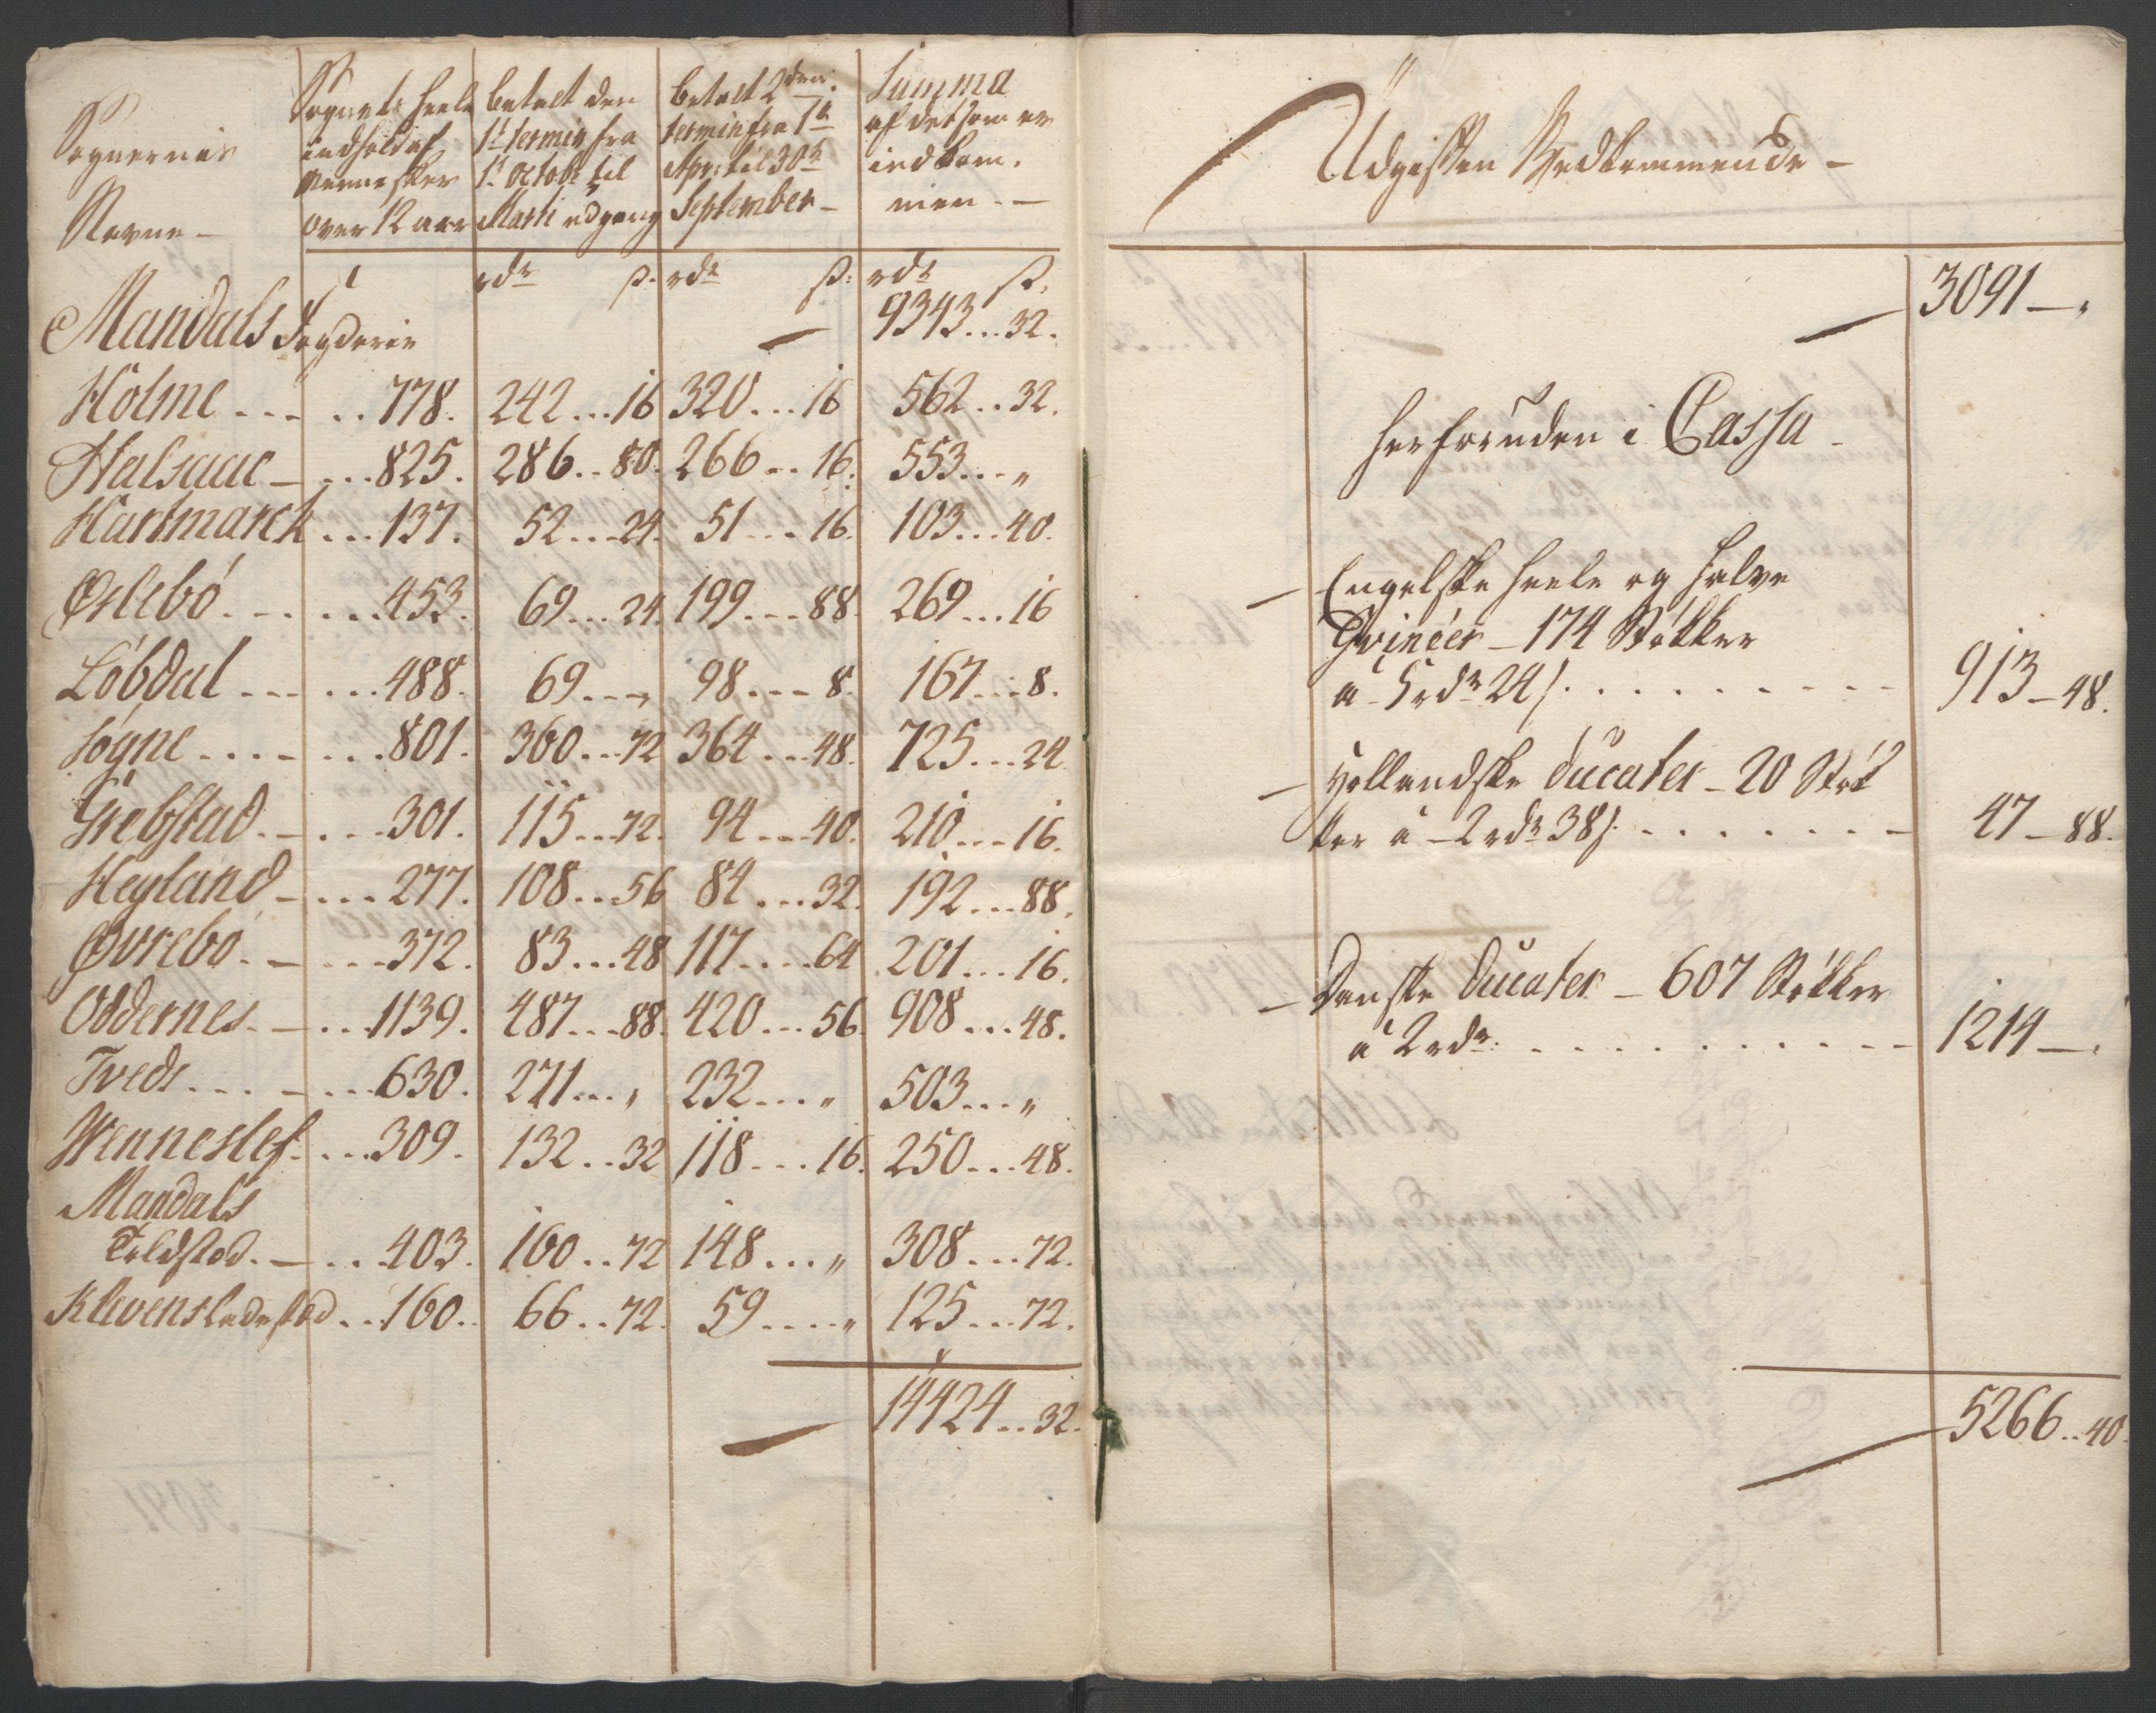 Sognernis
Navne –
Sognets heele
indhold af
Mennesker
over 12 aar
betalt den
1t termin fra
1t Octobr til
Marti udgang
betalt 2den
termin fra 1te
Apr: til 30te
September –
Summa
af det som er
indkom,
men. –
rdr ß. rdr ß: rdr ß.
Mandals Fogderie — 9343...32.
Holme - - - . . 778. 242...16 320...16 562..32.
Halsaae – ...825. 286..80. 266..16. 553...„
Hartmarck ...137. 52...24. 51...16. 103...40.
Øslebö. - - ...453. 69...24. 199...88. 269...16
Löbdal - - - ...488. 69...„ 98...8. 167...8.
Sögne . . . - ...801. 360...72 364...48. 725...24.
Grebstad. – ...301. 115...72. 94...40. 210...16.
Heyland – ...277. 108...56 84...32. 192...88.
Øvrebö. – ...372. 83...48 117....64 201...16.
Oddernes. – ...1139. 487...88. 420...56. 908...48.
Tveds . . . – ...630. 271...„ 232...„ 503...„
Venneslef. ...309. 132..32 118...16. 250...48.
Mandals
Toldstod. – ...403. 160..72 148...„ 308...72.
Klevens Ladestod ..160.. 66..72. 59....„ 125...72.
— 14424..32.
Udgiften Vedkommende –
— 3091 –„
herforuden i Cassa –
– Engelske heele og halve
Gvineer – 174 Støkker
a 5 rdr 24 ß. . . . . . . . . – – 913 – 48.
– Hollandske Ducater – 20 Støk
ker a – 2 rdr 38 ß. . . . . . . – – 47 – 88.
– Danske Ducater – 607 Støkker
a 2 rdr. . . . . . . . . . . – – 1214 – „
— 5266..40